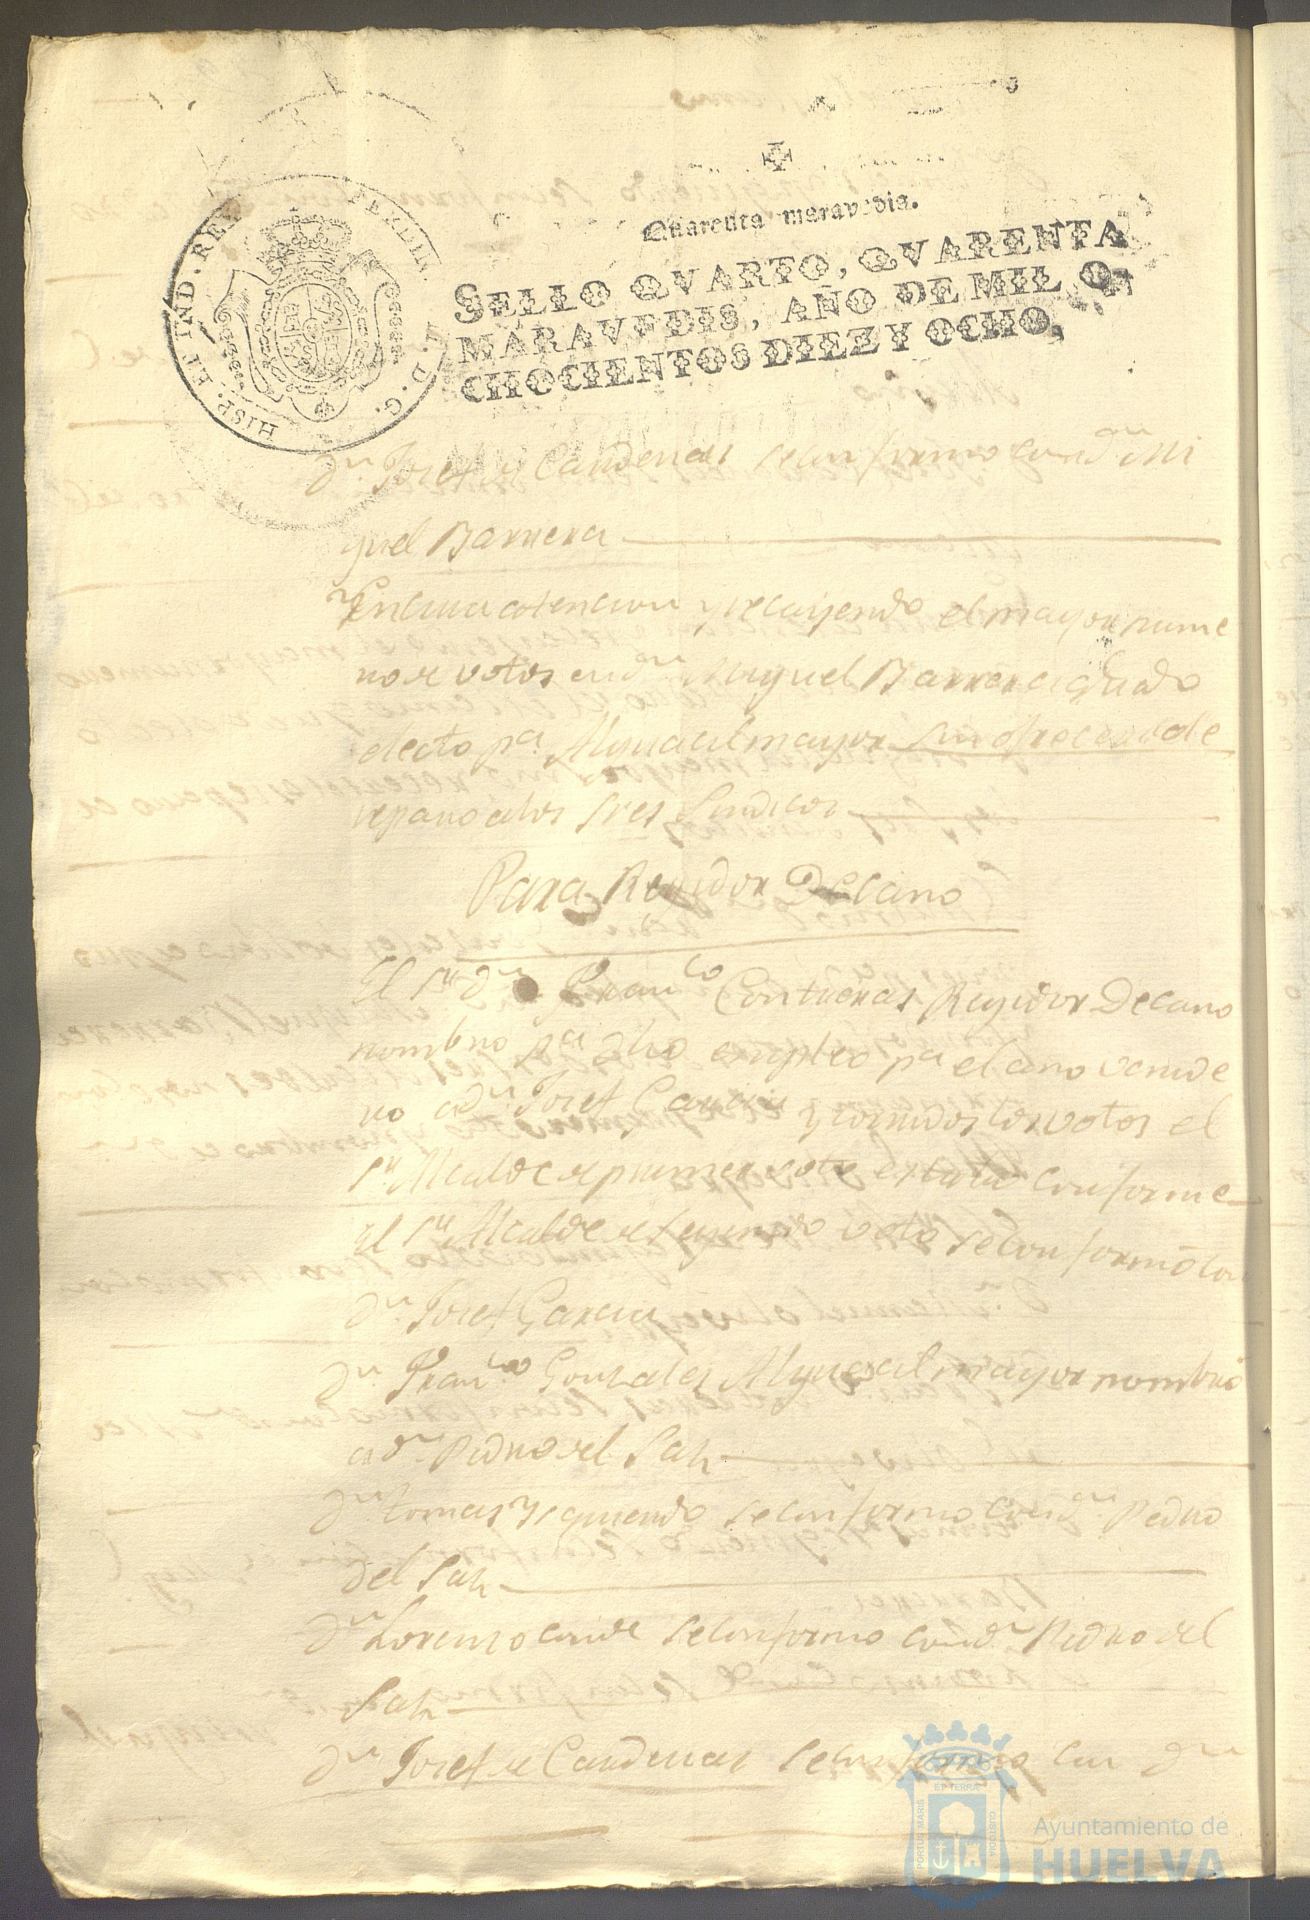 Quarenta maravedis.
SELLO QVARTO, QVARENTA
MARAVEDIS, AÑO DE MIL O-
CHOCIENTOS DIEZ Y OCHO,
HISP. ET IND. REX
FERDIN. VII. D. G.
Dn. Josef de Cardenas se conformo con dn. Mi
guel Barrera
Y en cuia atencion y recayendo el mayor nume
ro de votos en dn. Miguel Barrera quedo
electo pa. Alguacil mayor sin ofrecersele
reparo a los Sres Sindicos
Para Regidor Decano
El Sr. Dn. Franco Contreras Regidor Decano
nombro pa. dho empleo pa. el año venide
ro a dn. Josef Garcia y corridos los votos el
Sr. Alcalde de primer voto estubo conforme
El Sr. Alcalde de segundo voto se conformó con
dn. Josef Garcia
Dn. Franco. Gonzales Alguacil mayor nombró
a dn. Pedro del Saz
Dn. tomas Yzquierdo se conformo con dn. Pedro
del Saz
Dn. Lorenzo conde se conformo con dn. Pedro del
Saz
Dn. Josef de Cardenas se conformo con dn
PORTUS MARIS
ET TERRÆ
CUSTODIA
Ayuntamiento de
HUELVA